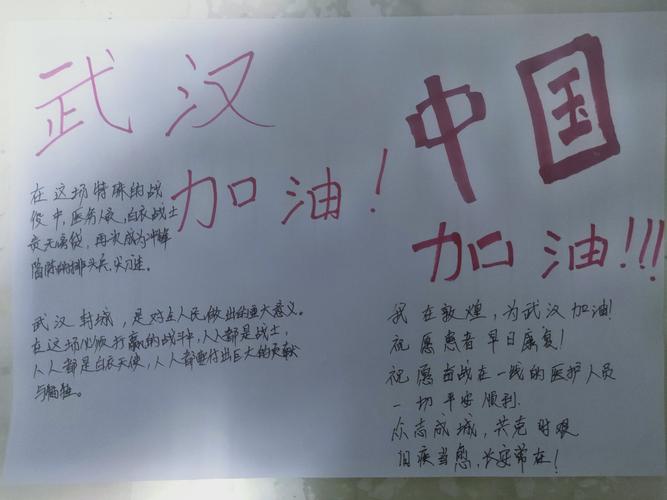 武汉
加油！
在这场特殊的战
役中，医务人员，白衣战士
责无旁贷，再次成为冲锋
陷阵的排头兵、尖刀连。
武汉封城，是对全人民做出的重大意义。
在这场必须打赢的战斗中，人人都是战士，
人人都是白衣天使，人人都要付出巨大的贡献
与牺牲。
中国
加油!!!
我在敦煌，为武汉加油！
祝愿患者早日康复！
祝愿奋战在一线的医护人员
一切平安顺利.
众志成城，共克时艰
旧疾当愈，长安常在！